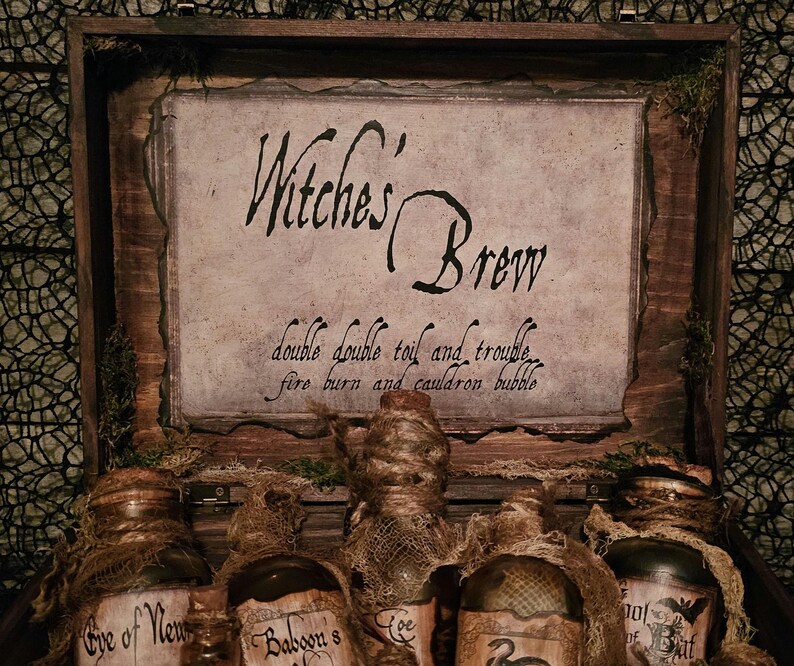 Witche's
Brew
double double toil and trouble
fire burn and cauldron bubble
Eye of New
Baboon's
Toe
of
Bat